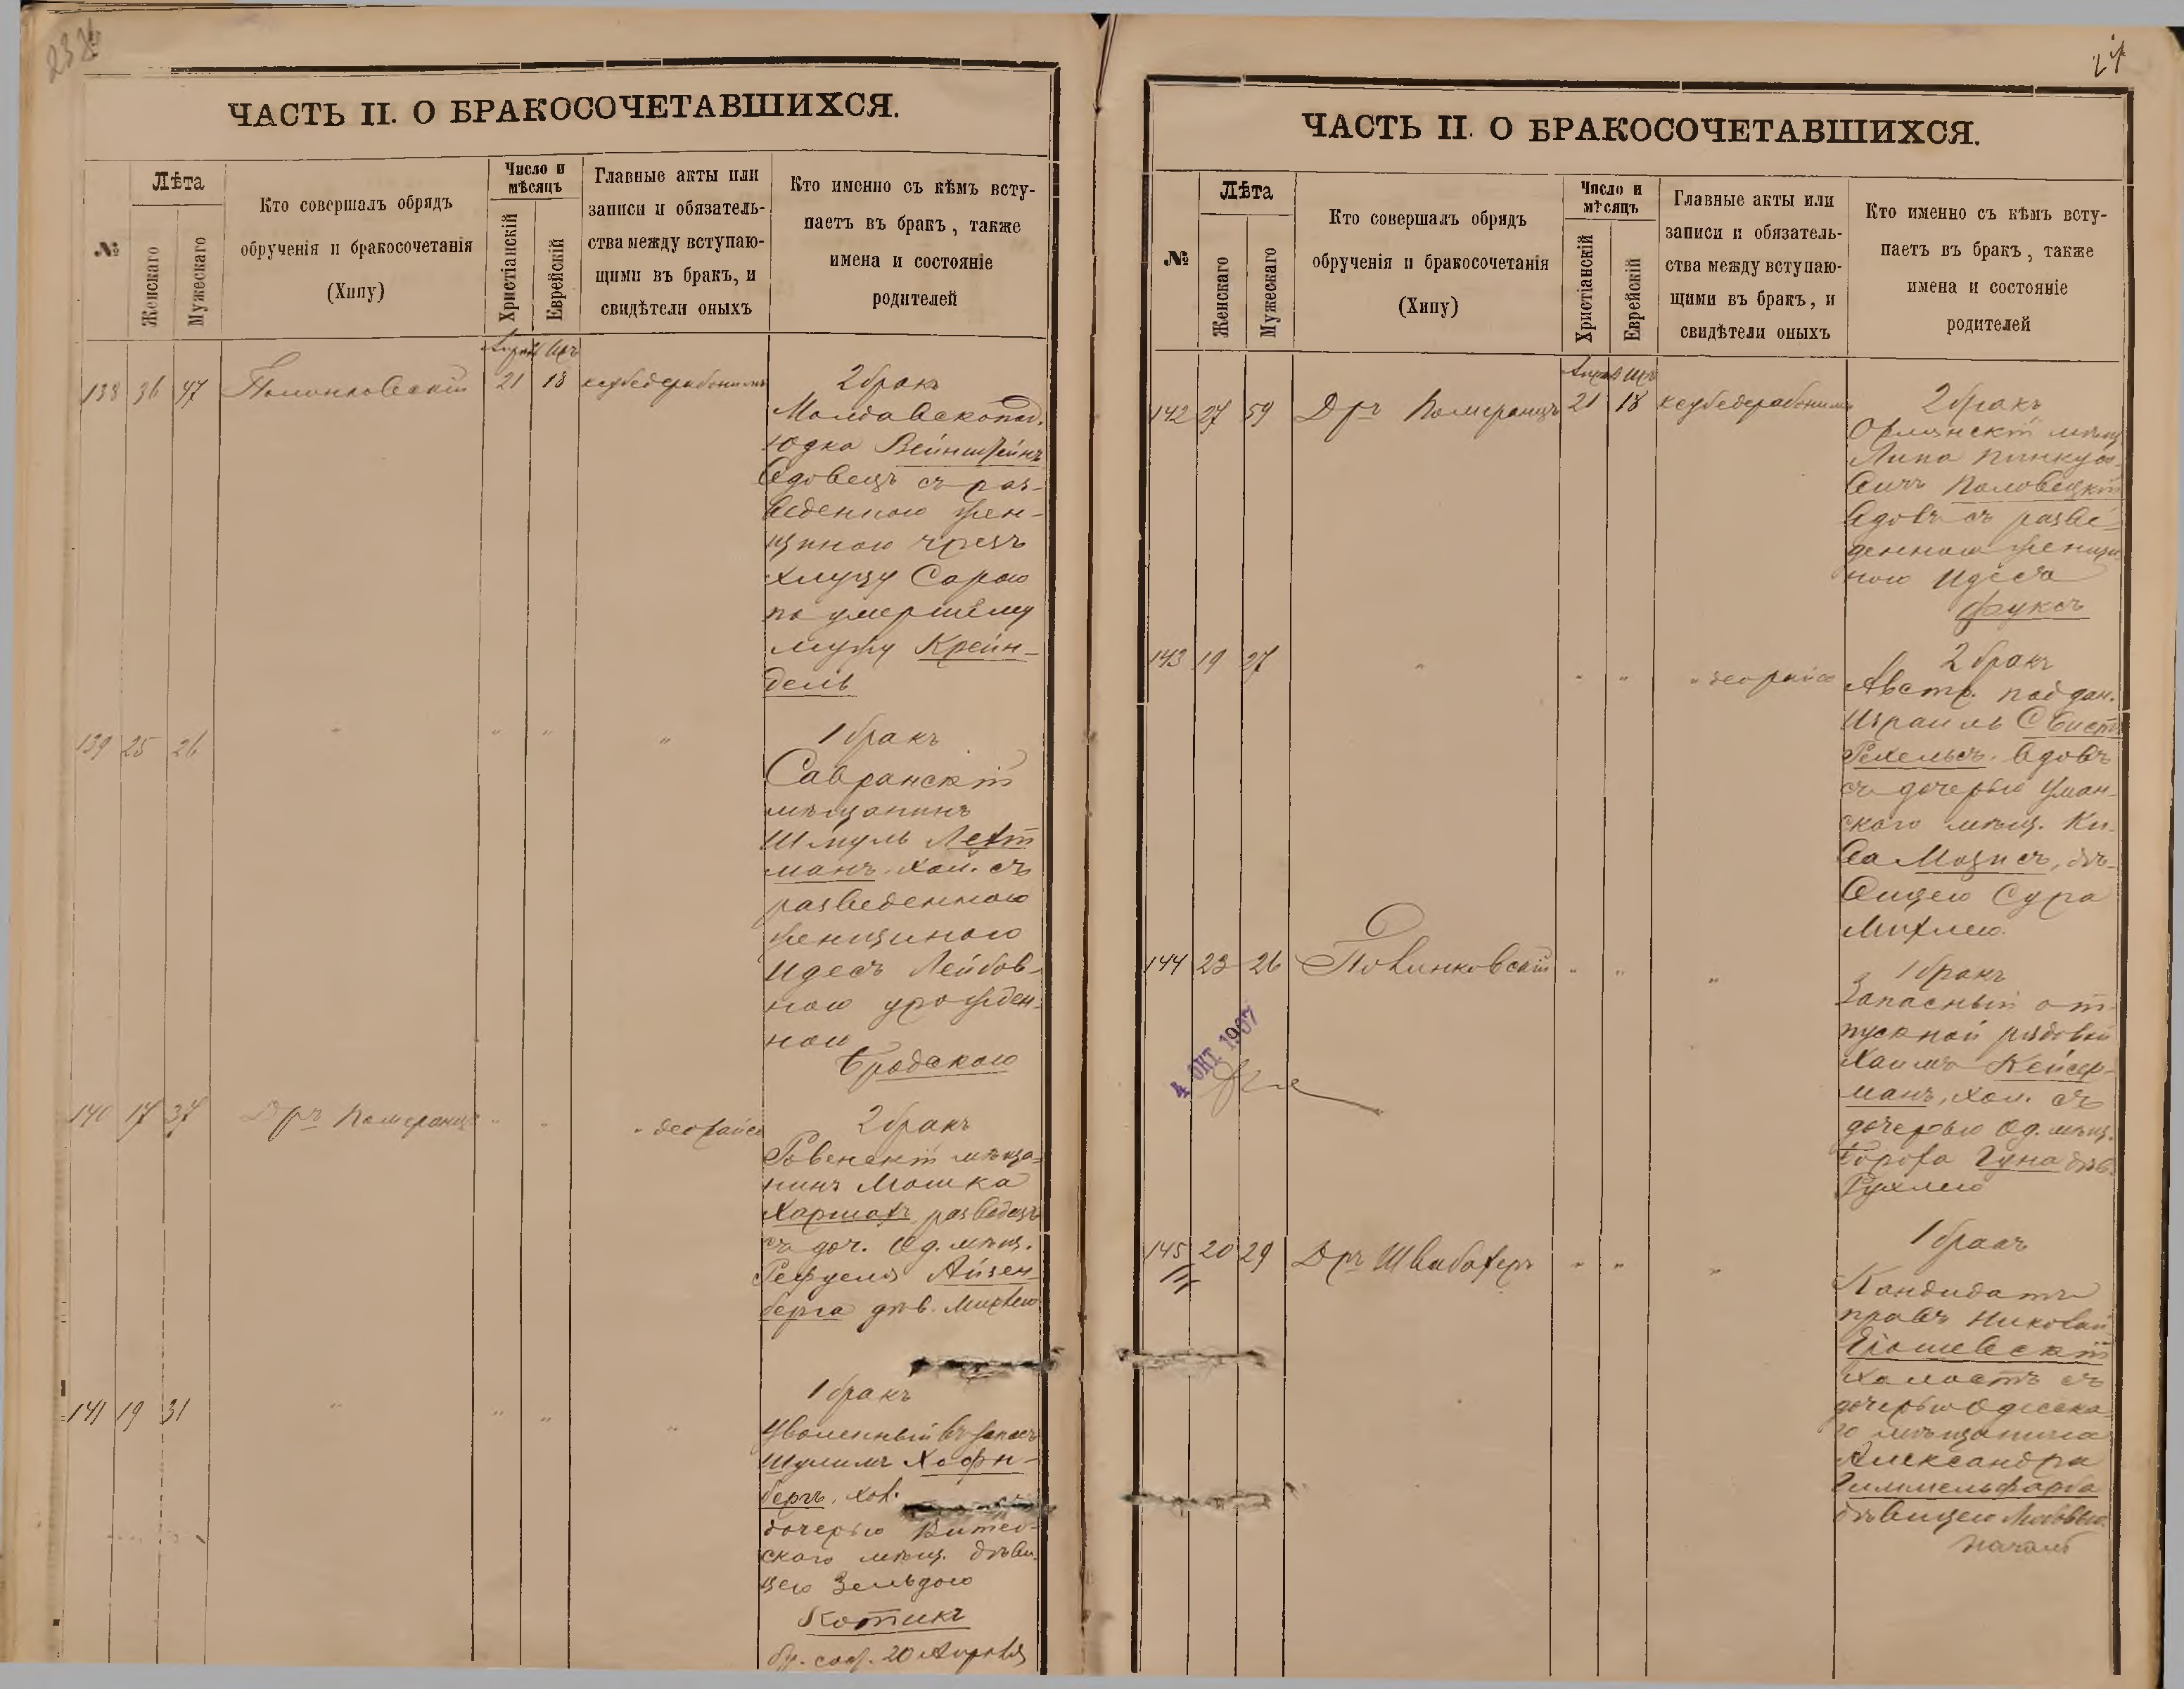 ЧАСТЬ II. О БРАКОСОЧЕТАВШИХСЯ.
№
Лѣта
Женскаго
Мужескаго
Кто совершалъ обрядъ
обрученія и бракосочетанія
(Хипу)
Число и
мѣсяцъ
Христіанскій
Еврейскій
Главные акты или
записи и обязатель-
ства между вступаю-
щими въ бракъ, и
свидѣтели оныхъ
Кто именно съ кѣмъ всту-
паетъ въ бракъ, также
имена и состояніе
родителей
138 36 47
21 18
2 бракъ
Юдка Вейнштейнъ
вдовецъ съ раз-
веденною жен-
щиною чрезъ
хлуцу Сарою
по умершему
мужу Крейн-
дель
139 25 26 " " " "
1 бракъ
Савранскій
мѣщанинъ
Шмуль Лехт
манъ, хол. съ
разведенною
женщиною
Идесъ Лейбов-
ною урожден-
ною
Бродскою
140 17 37 Д-ръ Померанцъ " " "
2 бракъ
Ровенскій мѣща-
нинъ Мошка
разводецъ
съ доч. Од. мѣщ.
Рефуеля Айзен-
берга дѣв. Михлею
141 19 31 " " " "
1 бракъ
Уволенный въ запасъ
Шулимъ Хофн-
бергъ, хол.
дочерью Витеб-
скаго мѣщ. дѣви-
цею Зельдою
Котикъ
20 Апрѣля
ЧАСТЬ II. О БРАКОСОЧЕТАВШИХСЯ.
№
Лѣта
Женскаго
Мужескаго
Кто совершалъ обрядъ
обрученія и бракосочетанія
(Хипу)
Число и
мѣсяцъ
Христіанскій
Еврейскій
Главные акты или
записи и обязатель-
ства между вступаю-
щими въ бракъ, и
свидѣтели оныхъ
Кто именно съ кѣмъ всту-
паетъ въ бракъ, также
имена и состояніе
родителей
142 27 59 Д-ръ Померанцъ 21 18
2 бракъ
Липа Пинкусо-
вичъ Половецкій
вдовъ съ разве-
денною женщи
ною Идеса
Фуксъ
143 19 27 " " " "
2 бракъ
Австр. поддан.
Израиль
вдовъ
съ дочерью Уман-
скаго мѣщ. Ки-
ва Мозисъ, дѣ-
вицею Сура
Михлею
144 23 26 " " "
1 бракъ
Запасный от-
пускной рядовой
Хаимъ Кейсер-
манъ, хол. съ
дочерью Од. мѣщ.
Боруха Гуна дѣв.
Рухлею
4 ОКТ 1907
145 20 29 Д-ръ Швабахеръ " " "
1 бракъ
Кандидатъ
правъ Николай
Ярошевскій
холостъ съ
дочерью Одесска
го мѣщанина
Александра
Гиммельфарба
дѣвицею Любовью